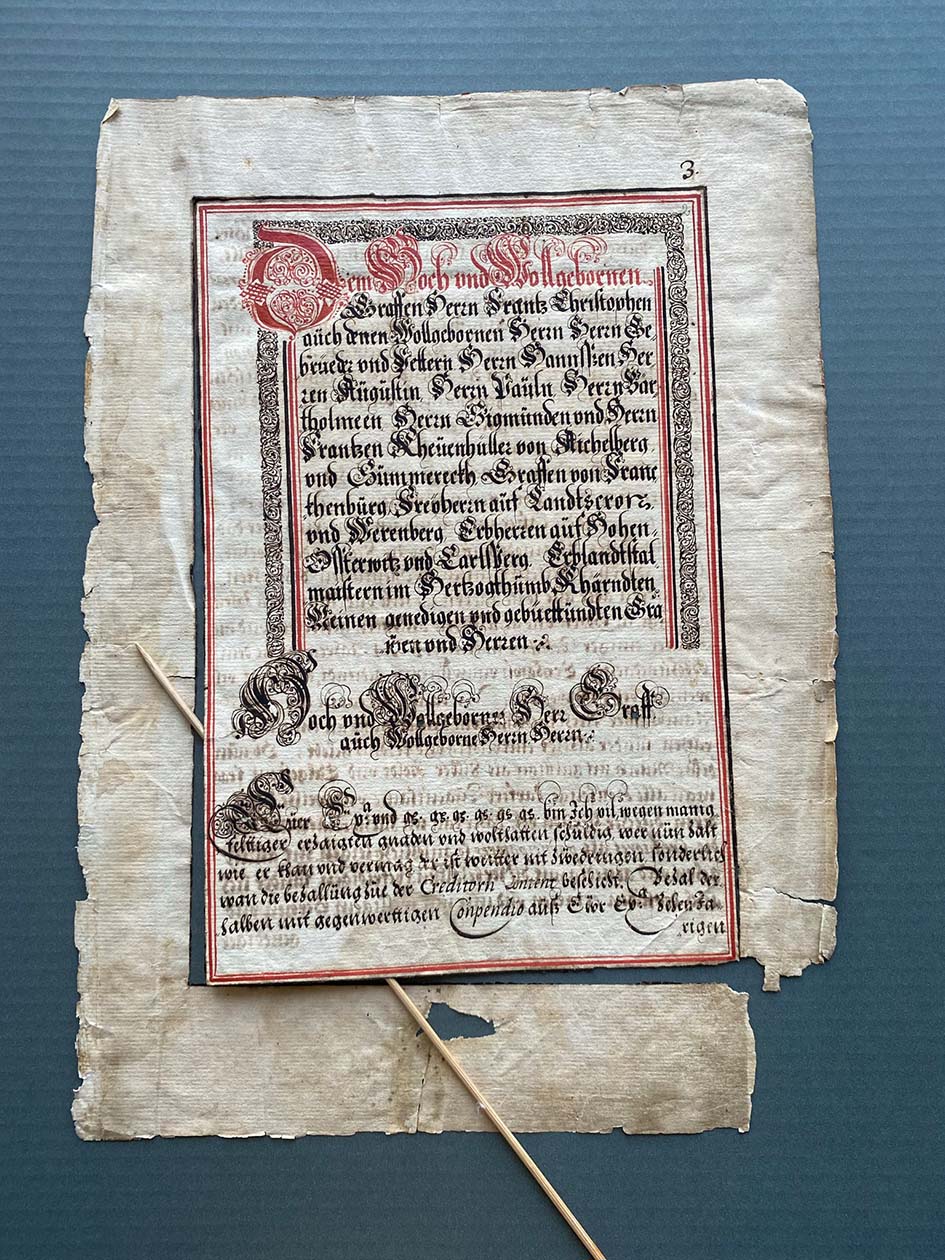 3.
Dem Hoch und Wollgebornen
Graffen Herrn Frantz Christophen
auch denen Wollgebornen Herrn Herrn Ge
brueder und Vettern Herrn Hannssen Her
ren Augustin, Herrn Pauln, Herrn Bar
tholmeen Herrn Sigmunden und Herrn
Frantzen Kheüenhuller von Aichelberg
und Sümmereckh Graffen von Franc
khenbürg, Freyherrn auf Landtscron
und Werenberg, Erbherren auf Hohen
Osterwitz und Carlsberg, Erblandtstal
maistern im Hertzogthumb Khärndten,
Meinen genedigen und gebüettundten Gra
ven und Herren
Hoch und Wollgeborner Herr Graff
auch Wollgeborne Herrn Herrn
Euer Ex: und gs. gs. gs. gs. gs. gs. bin Ich vil, wegen manig
felttiger erzaigten gnaden und wolthatten schuldig, wer nun zalt
wie er khan und vermag der ist weitter nit zwedrengen sonderlich
wan die bezallung zue der Creditorn Content beschicht. Bezal der
halben mit gegenwerttigen Conpendio auß Eior Ex:
rigen